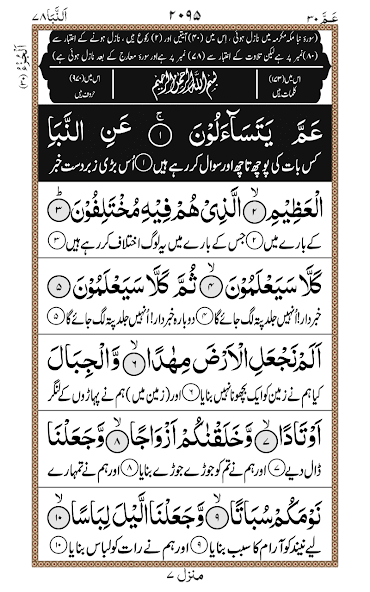 عَمَّ ٣٠ ٢٠٩٥ اَلنَّبَاِ ٧٨
اَلْجُزْءُ (٣٠)
(سورۂ نبا مکہ مکرمہ میں نازل ہوئی ، اس میں (٤٠) آیتیں اور (٢) رکوع ہیں ، نازل ہونے کے اعتبار سے
(٨٠) نمبر پر ہے لیکن تلاوت کے اعتبار سے (٧٨) نمبر پر ہے اور سورۂ معارج کے بعد نازل ہوئی ہے)
اس میں (١٧٣) کلمات ہیں بِسْمِ اللّٰهِ الرَّحْمٰنِ الرَّحِيْمِ اس میں (٩٧٠) حروف ہیں
عَمَّ يَتَسَآءَلُوْنَ ۚ‏ ١ عَنِ النَّبَاِ
کس بات کی پوچھ تاچھ اور سوال کر رہے ہیں ١ اُس بڑی زبردست خبر
الْعَظِيْمِۙ‏ ٢ الَّذِىْ هُمْ فِيْهِ مُخْتَلِفُوْنَؕ‏ ٣
کے بارے میں ٢ جس کے بارے میں یہ لوگ اختلاف کر رہے ہیں ٣
كَلَّا سَيَعْلَمُوْنَۙ‏ ٤ ثُمَّ كَلَّا سَيَعْلَمُوْنَ ٥
خبردار! اُنہیں جلد پتہ لگ جائے گا ٤ دوبارہ خبردار! اُنہیں جلد پتہ لگ جائے گا ٥
اَلَمْ نَجْعَلِ الْاَرْضَ مِهٰدًاۙ‏ ٦ وَّالْجِبَالَ
کیا ہم نے زمین کو ایک بچھونا نہیں بنایا ٦ اور (زمین میں) ہم نے پہاڑوں کے لنگر
اَوْتَادًاۙ‏ ٧ وَّخَلَقْنٰكُمْ اَزْوَاجًاۙ‏ ٨ وَّجَعَلْنَا
ڈال دیے ٧ اور ہم نے تم کو جوڑے جوڑے بنایا ٨ اور ہم نے تمہارے
نَوْمَكُمْ سُبَاتًاۙ‏ ٩ وَّجَعَلْنَا الَّيْلَ لِبَاسًاۙ‏ ١٠
لیے نیند کو آرام کا سبب بنایا ٩ اور ہم نے رات کو لباس بنایا ١٠
منزل ٧